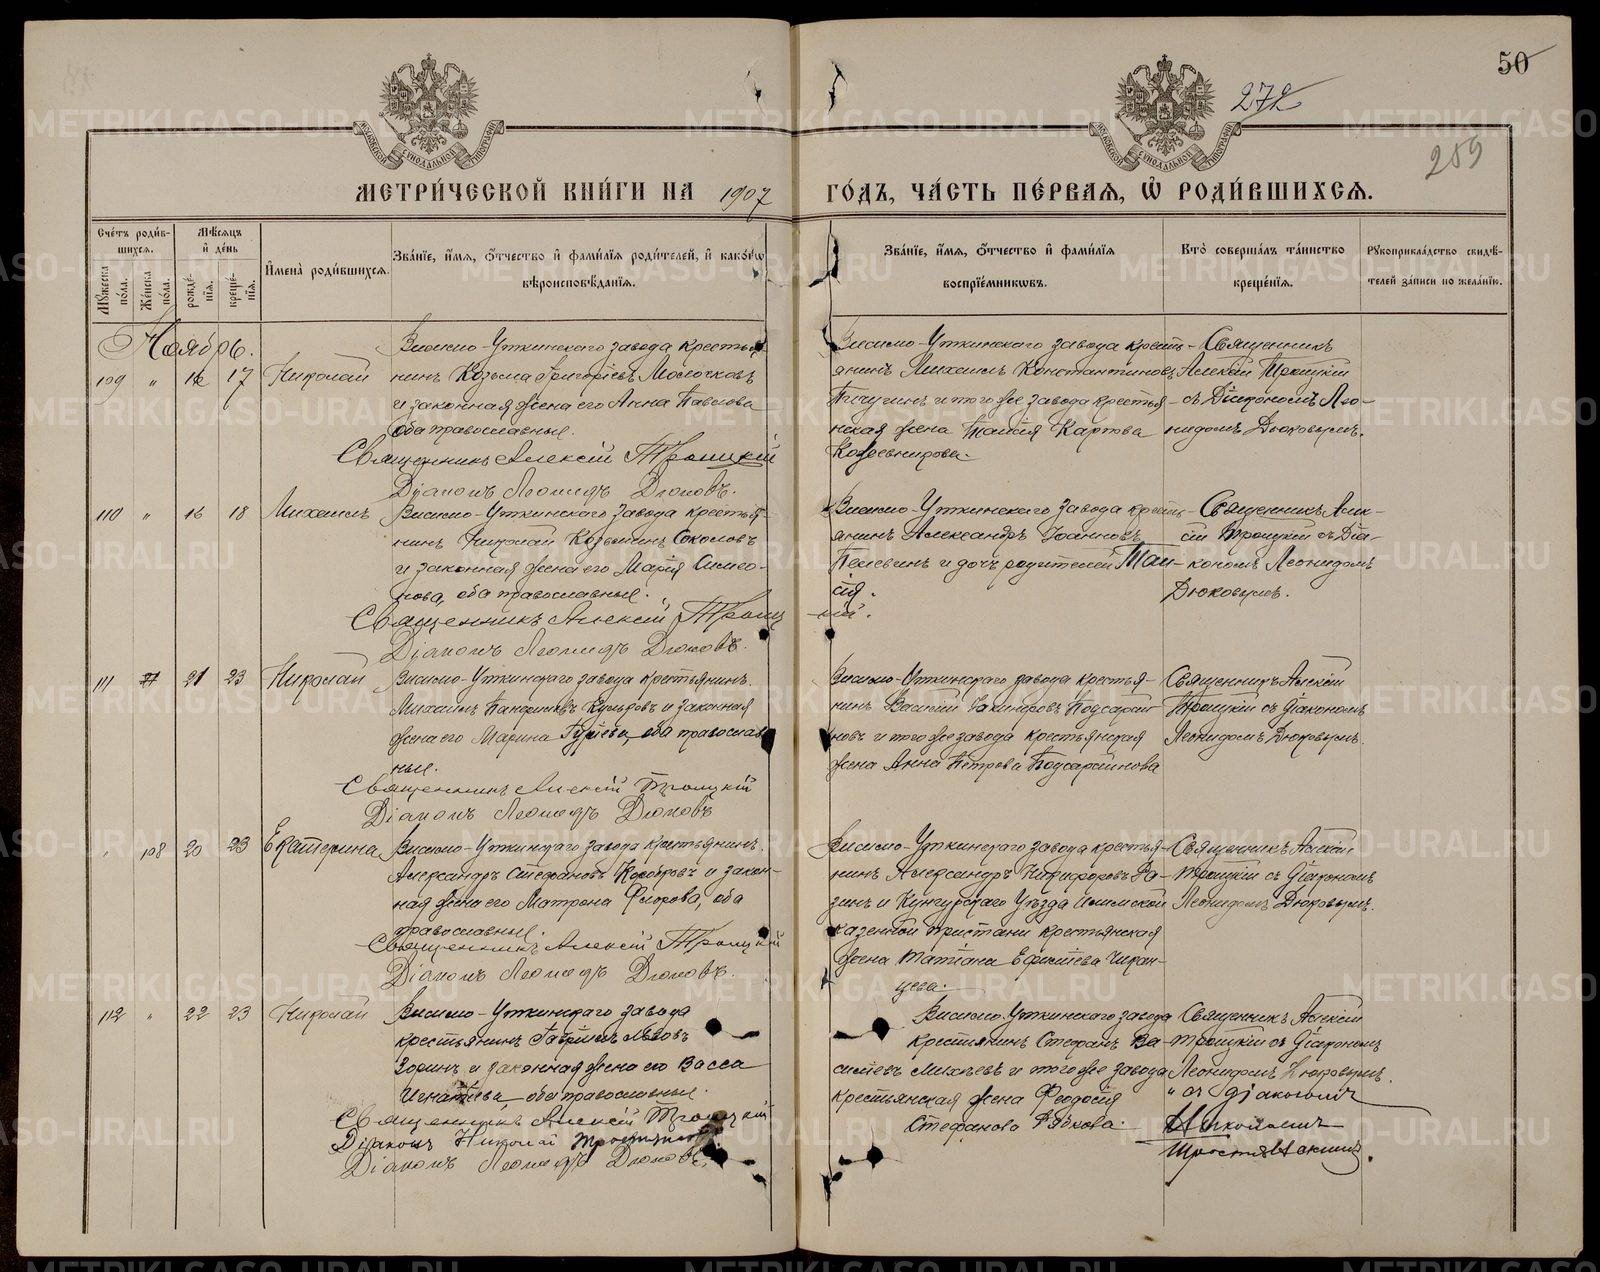 50
272
259
МЕТРИ́ЧЕСКОЙ КНИ́ГИ НА 1907 ГО́ДЪ, ЧА́СТЬ ПЕ́РВАѦ, Ѽ РОДИ́ВШИХСѦ.
Сче́тъ роди́вшихсѧ.
Мꙋ́жеска по́ла.
Же́нска по́ла.
Мѣ́сѧцъ и҆ де́нь
рожде́нїѧ.
креще́нїѧ.
И҆мена̀ роди́вшихсѧ.
Зва́нїе, и҆́мѧ, ѻ҆́тчество и҆ фами́лїѧ роди́телей, и҆ како́гѡ
вѣроисповѣ́данїѧ.
Зва́нїе, и҆́мѧ, ѻ҆́тчество и҆ фами́лїѧ
воспрїе́мникѡвъ.
Кто̀ соверша́лъ та́инство
креще́нїѧ.
Рꙋкоприкла́дство свидѣ́-
телей за́писи по жела́нїю.
Ноябрь.
109 " 16 17 Николай
Висимо-Уткинскаго завода крестья-
нинъ Козьма Григоріевъ Молочковъ
и законная жена его Анна Павлова
оба православные.
Священникъ Алексій Троицкій
Діаконъ Леонидъ Дюковъ.
Висимо-Уткинскаго завода кресть-
янинъ Михаилъ Константиновъ
Пичугинъ и того же завода крестья-
нская жена Таисія Карпова
Кожевникова.
Священникъ
Алексій Троицкій
съ Діакономъ Лео-
нидомъ Дюковымъ.
110 " 16 18 Михаилъ
Висимо-Уткинскаго завода крестья-
нинъ Николай Козьминъ Соколовъ
и законная жена его Марія Симео-
нова, оба православные.
Священникъ Алексій Троицкій.
Діаконъ Леонидъ Дюковъ.
Висимо-Уткинскаго завода кресть-
янинъ Александръ Іоанновъ
и дочь родителей Таи-
сія.
Священникъ Алек-
сій Троицкій съ Діа-
кономъ Леонидомъ
Дюковымъ.
111 21 23 Николай
Висимо-Уткинскаго завода крестьянинъ
Михаилъ Панфиловъ и законная
жена его Марина Гуріева, оба православ-
ные.
Священникъ Алексій Троицкій
Діаконъ Леонидъ Дюковъ
Висимо-Уткинскаго завода крестья-
нинъ Василій Іакинфовъ Подсарай-
новъ и того же завода крестьянская
жена Анна Петрова Подсарайнова
Священникъ Алексій
Троицкій съ діакономъ
Леонидомъ Дюковымъ.
" 108 20 23 Екатерина
Висимо-Уткинскаго завода крестьянинъ
Александръ Стефановъ Коробковъ и закон-
ная жена его Матрона Флорова, оба
православные.
Священникъ Алексій Троицкій
Діаконъ Леонидъ Дюковъ.
Висимо-Уткинскаго завода крестья-
нинъ Александръ Никифоровъ Ра-
зинъ и Кунгурскаго Уѣзда Илимской
казенной пристани крестьянская
жена Татіана Ефимiева
Священникъ Алексій
Троицкій съ діакономъ
Леонидомъ Дюковымъ.
112 " 22 23 Николай
Висимо-Уткинскаго завода
крестьянинъ Гавріилъ Львовъ
Зоринъ и законная жена его Васса
Игнатіева, оба православные.
Священникъ Алексій Троицкій
Діаконъ Николай
Діаконъ Леонидъ Дюковъ.
Висимо-Уткинскаго завода
крестьянинъ Стефанъ Ва-
силіевъ Михѣевъ и того же завода
крестьянская жена Феодосія
Стефанова Рябкова.
Священникъ Алексій
Троицкій съ діакономъ
Леонидомъ Дюковымъ.
" съ діакономъ
Николаемъ